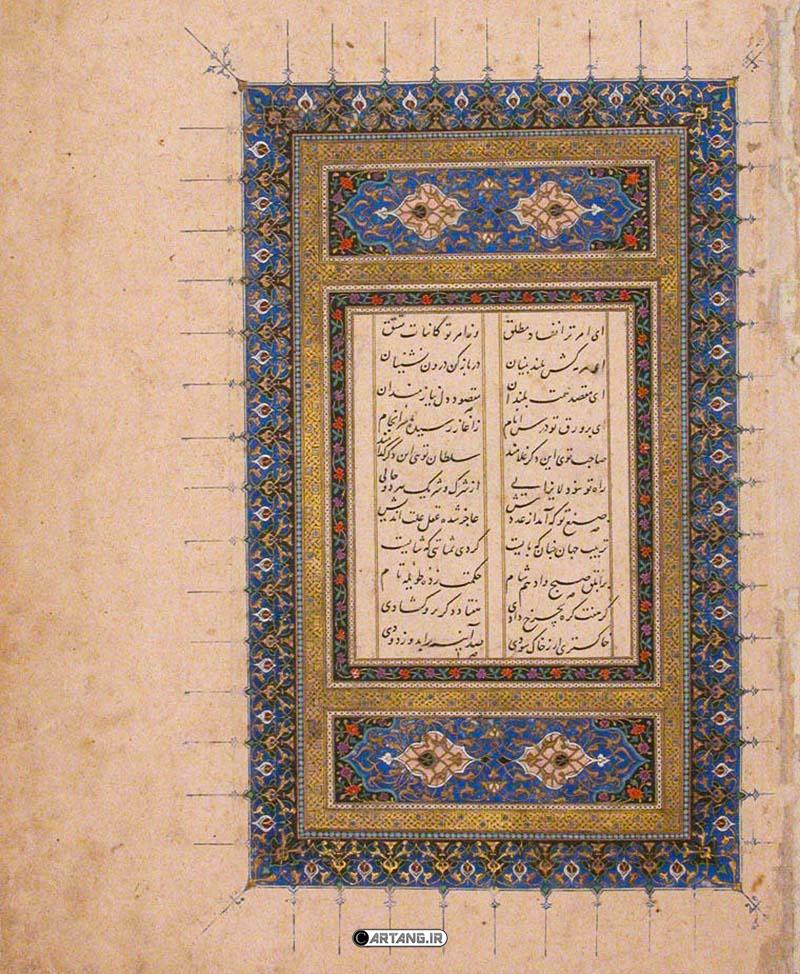 ای امر ترا نفاد مطلق وز امر تو کائنات مشتق
ای سرمه کش بلند بینان در باز کن درون نشینان
ای مقصد همت بلندان مقصود دل نیازمندان
ای بر ورق تو درس ایام ز آغاز رسیده تا بانجام
صاحب توی این دگر غلامند سلطان توئی این دگر کدامند
راه تو بنور لایزالی از شرک و شریک هر دو خالی
در صنع تو کآمد از عدد بیش عاجز شده عقل علت اندیش
ترتیب جهان چنانک بایست کردی بمثابتی که شایست
بر ابلق صبح و ادهم شام حکمت زده طویله
گر هفت گره بچرخ دادی هفتاد دگر برو گشادی
خاکستری ار ز خاک سودی صد آینه را بدو زدودی
CARTANG.IR